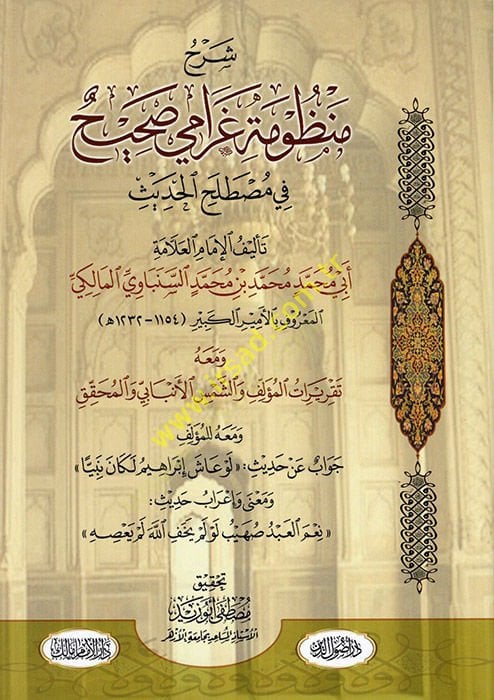 شَرْحُ
مَنْظُومَةِ غَرَامِي صَحِيحٌ
فِي مُصْطَلَحِ الْحَدِيثِ
تَأْلِيفُ الْإِمَامِ الْعَلَّامَةِ
أَبِي مُحَمَّدٍ مُحَمَّدِ بْنِ مُحَمَّدٍ السَّنْبَاوِيِّ الْمَالِكِيِّ
الْمَعْرُوفِ بِالْأَمِيرِ الْكَبِيرِ (١١٥٤-١٢٣٢هـ)
وَمَعَهُ
تَقْرِيرَاتُ الْمُؤَلِّفِ وَالشَّمْسِ الْأَنْبَابِيِّ وَالْمُحَقِّقِ
وَمَعَهُ لِلْمُؤَلِّفِ
جَوَابٌ عَنْ حَدِيثِ: «لَوْ عَاشَ إِبْرَاهِيمُ لَكَانَ نَبِيًّا»
وَمَعْنَى وَإِعْرَابُ حَدِيثِ:
«نِعْمَ الْعَبْدُ صُهَيْبٌ لَوْ لَمْ يَخَفِ اللَّهَ لَمْ يَعْصِهِ»
تحقيق
مصطفى أبو زيد
الأستاذ المساعد بجامعة الأزهر
دار أصول الدين
دار الإمام مالك